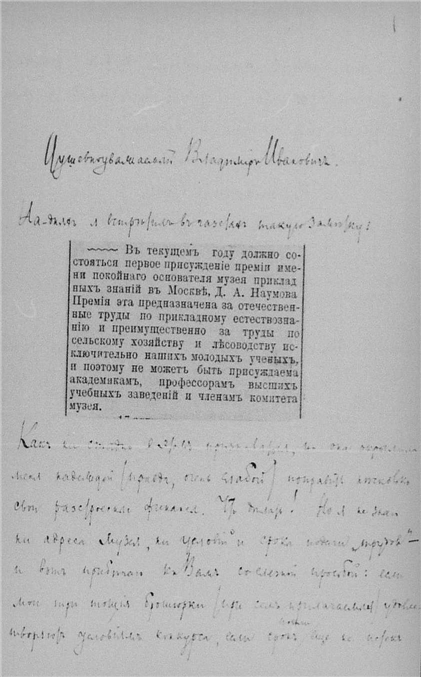 Душевноуважаемый Владиміръ Ивановичъ.
На-дняхъ я встрѣтилъ въ газетахъ такую замѣтку:
Въ текущемъ году должно со-
стояться первое присужденіе преміи име-
ни покойнаго основателя музея приклад
ныхъ знаній въ Москвѣ, Д. А. Наумова
Премія эта предназначена за отечествен-
ные труды по прикладному естествозна-
нію и преимущественно за труды по
сельскому хозяйству и лѣсоводству ис-
ключительно нашихъ молодыхъ ученыхъ,
и поэтому не можетъ быть присуждаема
академикамъ, профессорамъ высшихъ
учебныхъ заведеній и членамъ комитета
музея.
Какъ ни но она окрылила
меня надеждой (правда, очень слабой) поправить
свои финансы. Но я не знаю
ни адреса Музея, ни условій и срока подачи „трудовъ“ –
и вотъ прибѣгаю къ Вамъ со слезной просьбой: если
мои три тощія брошюрки (при семъ прилагаемыя) удовле-
творяютъ условіямъ конкурса, если срокъ подачи еще не